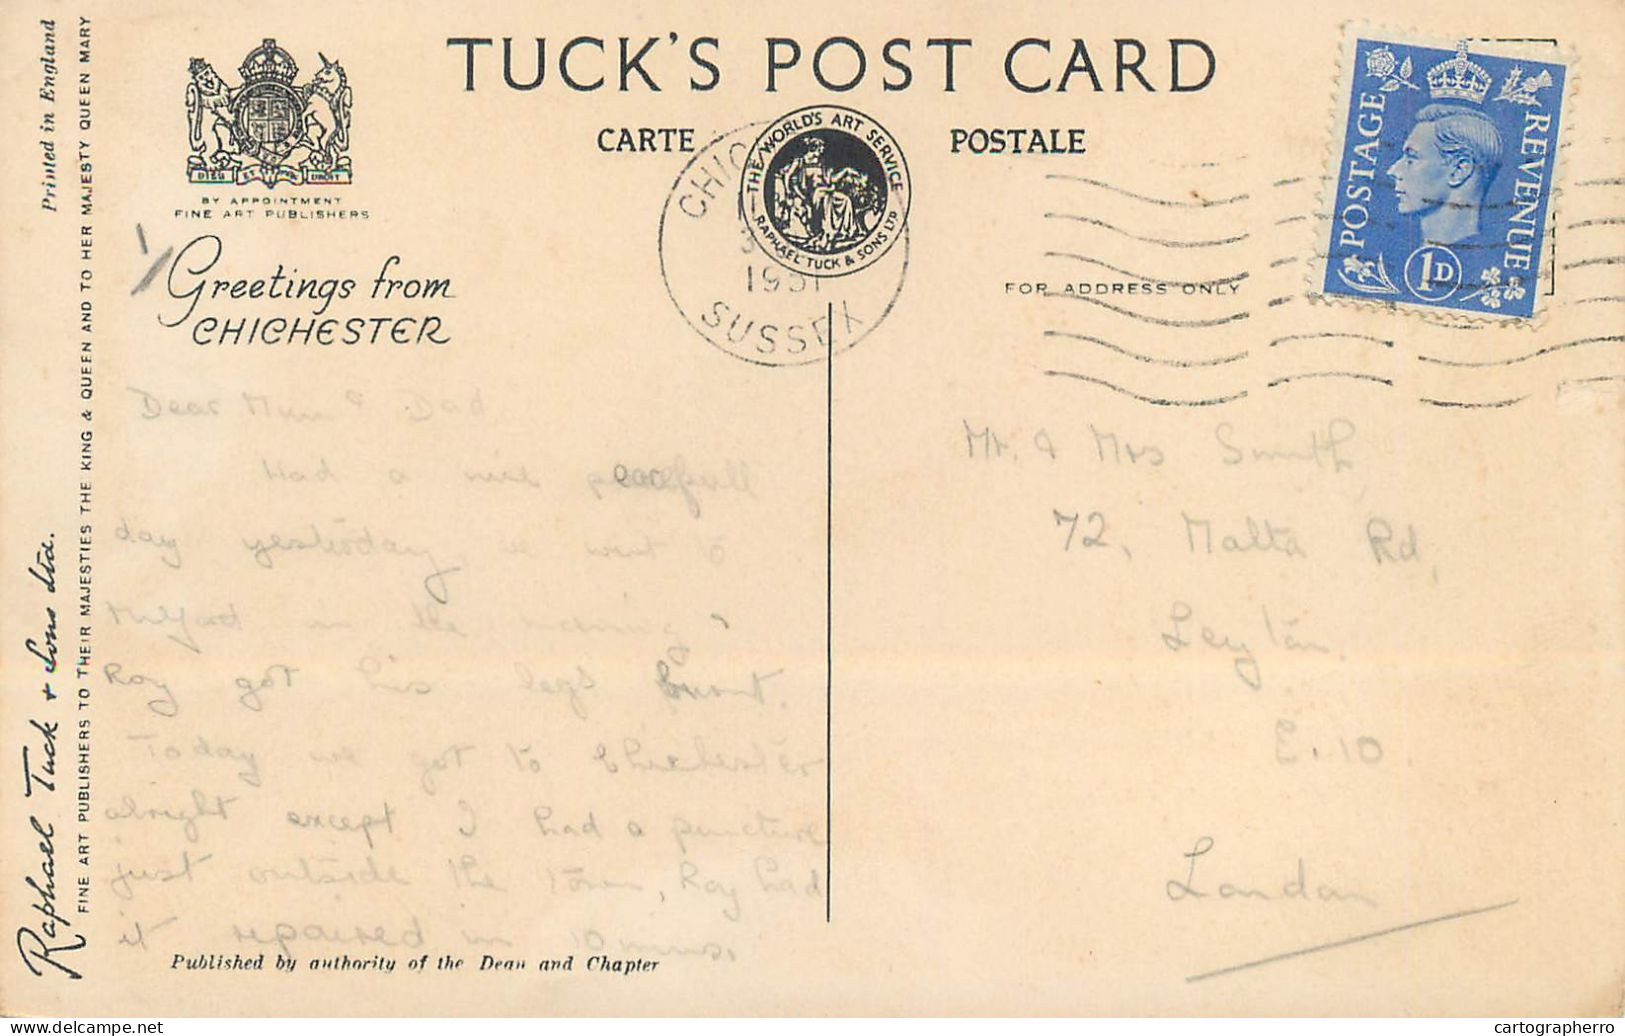 TUCK'S POST CARD
CARTE POSTALE
THE WORLD'S ART SERVICE
RAPHAEL TUCK & SONS LTD
DIEU ET MON DROIT
BY APPOINTMENT
FINE ART PUBLISHERS
Greetings from
CHICHESTER
Printed in England
Raphael Tuck & Sons Ltd.
FINE ART PUBLISHERS TO THEIR MAJESTIES THE KING & QUEEN AND TO HER MAJESTY QUEEN MARY
1951
SUSSEX
FOR ADDRESS ONLY
POSTAGE
REVENUE
1D
Dear Mum & Dad
Had a nice peacefull
day yesterday, we went to
Milford in the morning,
Roy got his legs burnt.
Today we got to Chichester
alright except I had a puncture
just outside the town, Roy had
it repaired in 10 mins.
Mr. & Mrs Smith,
72, Malta Rd,
Leyton.
E.10.
London
Published by authority of the Dean and Chapter
delcampe.net
cartographerro